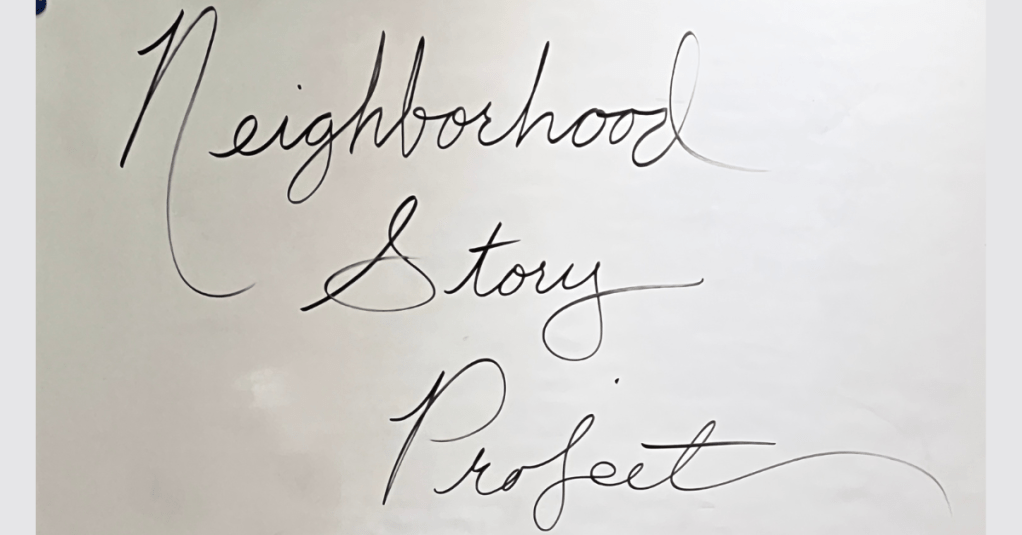 Neighborhood
Story
Project